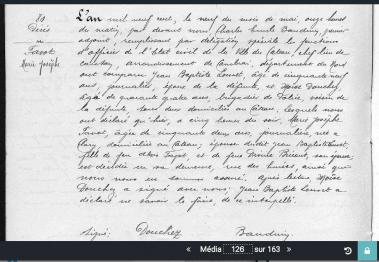 80
Décès
Tarot
Marie Josèphe
L'an mil neuf cent, le neuf du mois de mai, onze heures
du matin, par devant nous, Charles Émile Bauduin, premier
adjoint, remplissant par délégation spéciale les fonctions
d'officier de l'État civil de la Ville du Cateau, chef-lieu de
canton, arrondissement de Cambrai, département du Nord
ont comparu Jean Baptiste âgé de cinquante neuf
ans, journalier, époux de la défunte, et Moïse Douchez,
âgé de quarante quatre ans, de Police, voisin de
la défunte, tous deux domiciliés au Cateau, lesquels nous
ont déclaré qu'hier, à cinq heures du soir, Marie Josèphe
Tarot, âgée de cinquante deux ans, journalière, née à
domiciliée au Cateau, épouse dudit Jean Baptiste
fille de feu et de feue son épouse,
est décédée en sa demeure, rue des ainsi que
nous nous en sommes assuré. Après lecture, Moïse
Douchez a signé avec nous; Jean Baptiste a
déclaré ne savoir le faire, de ce interpellé.
Signé: Douchez Bauduin
« Média 126 sur 163 »